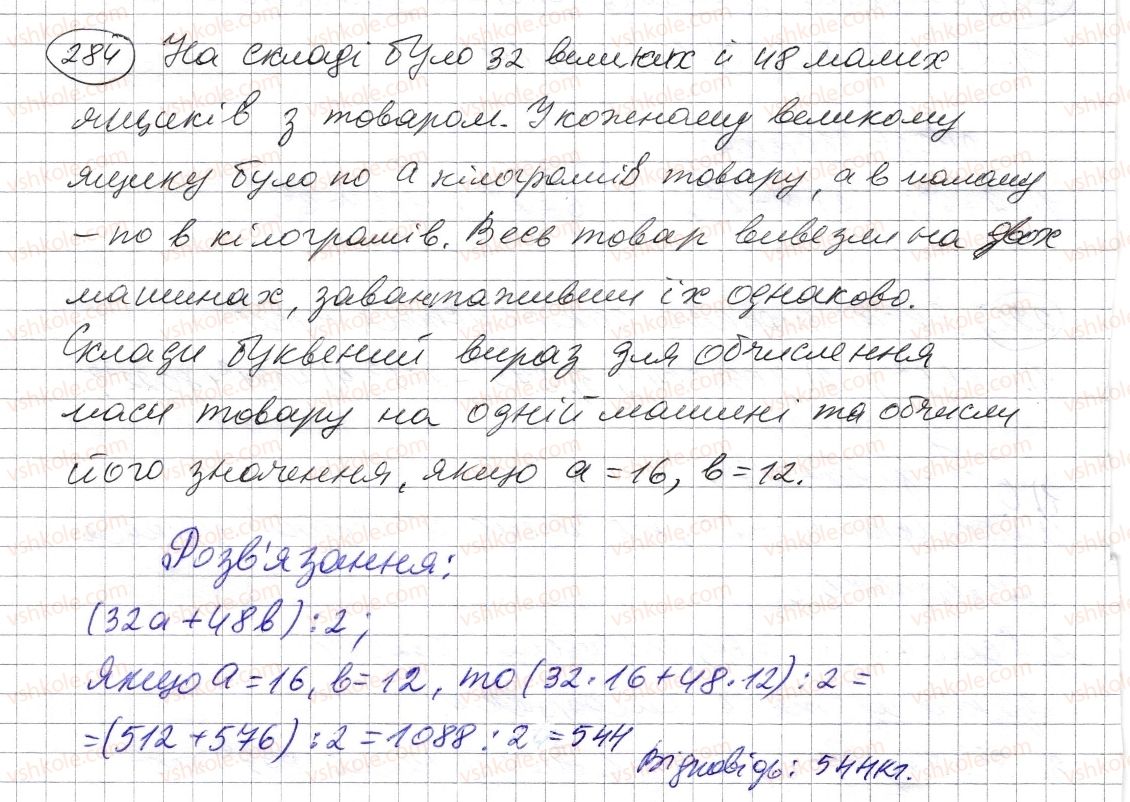 284 На складі було 32 великих й 48 малих
ящиків з товаром. У кожному великому
ящику було по a кілограмів товару, а в малому
– по в кілограмів. Весь товар вивезли на двох
машинах, завантаживши їх однаково.
Склади буквений вираз для обчислення
маси товару на одній машині та обчисли
його значення, якщо a = 16, в = 12.
Розв'язання:
(32a + 48в) : 2;
Якщо a = 16, в = 12, то (32 · 16 + 48 · 12) : 2 =
= (512 + 576) : 2 = 1088 : 2 = 544
Відповідь: 544кг.